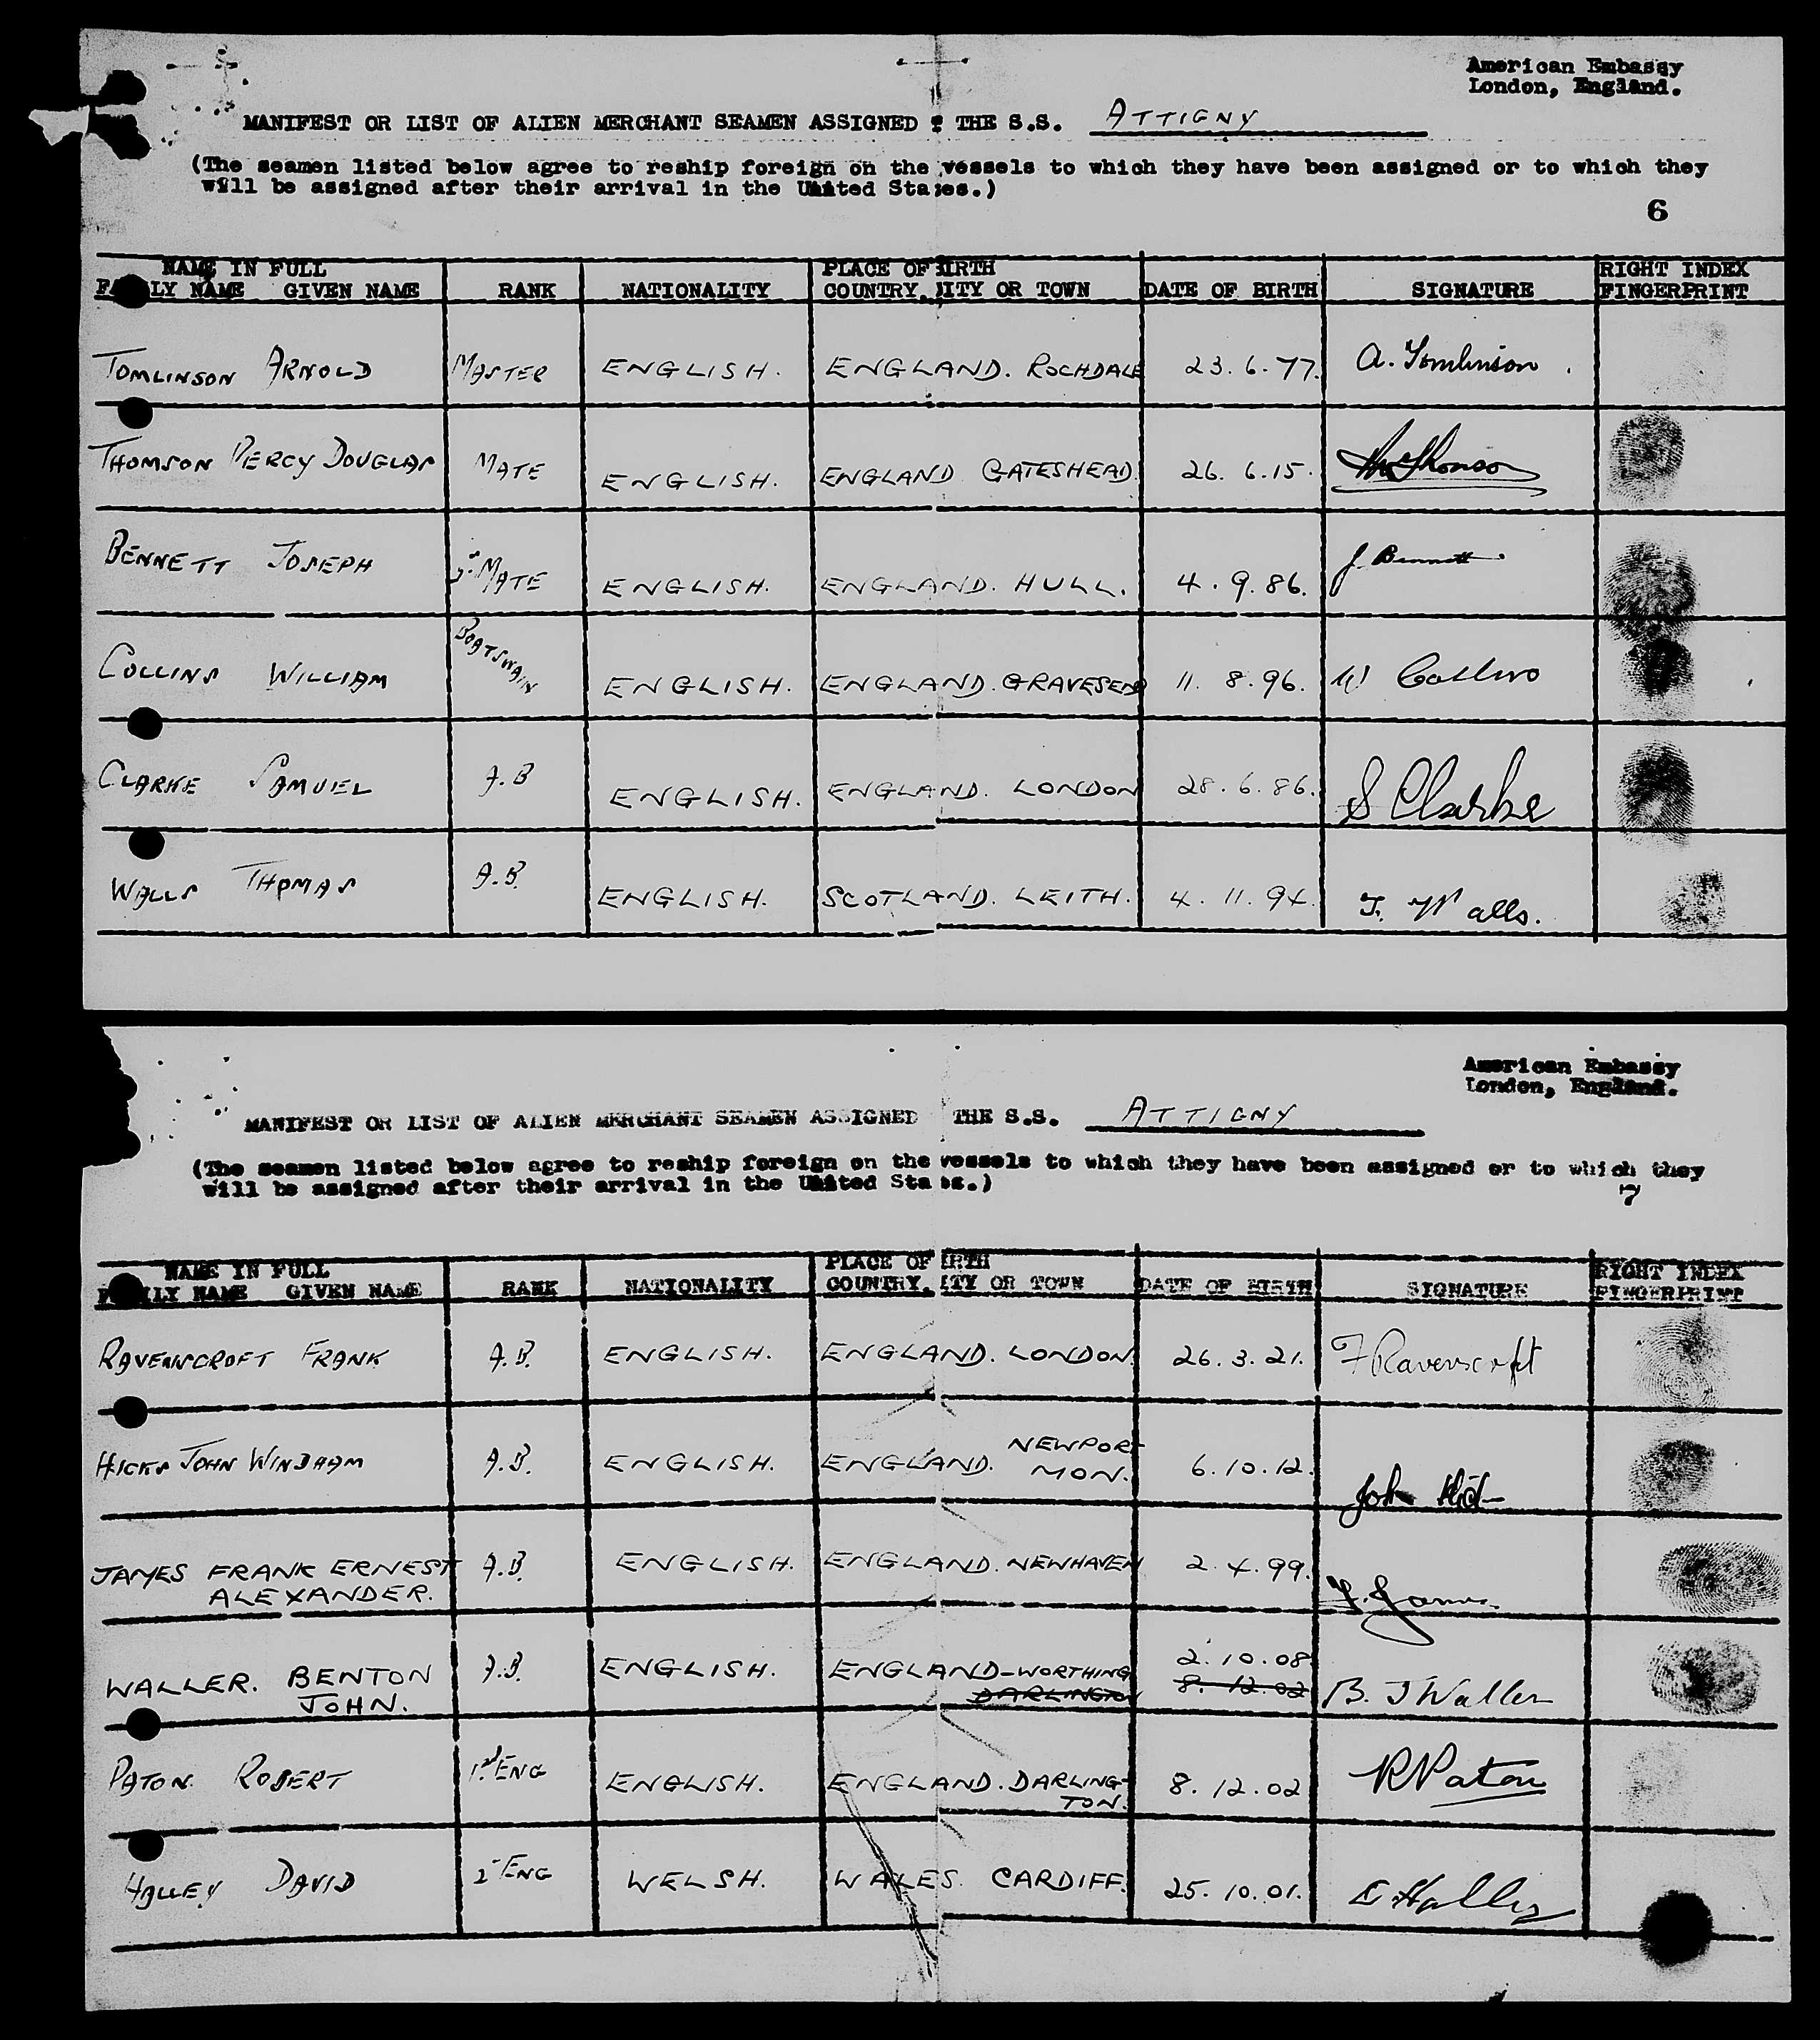 American Embassy
London, England.
MANIFEST OR LIST OF ALIEN MERCHANT SEAMEN ASSIGNED THE S.S. ATTIGNY
(The seamen listed below agree to reship foreign on the vessels to which they have been assigned or to which they
will be assigned after their arrival in the United States.)
6
NAME IN FULL PLACE OF BIRTH RIGHT INDEX
FAMILY NAME GIVEN NAME RANK NATIONALITY COUNTRY, CITY OR TOWN DATE OF BIRTH SIGNATURE FINGERPRINT
TOMLINSON ARNOLD MASTER ENGLISH. ENGLAND. ROCHDALE 23.6.77. A. Tomlinson.
THOMSON PERCY DOUGLAS MATE ENGLISH. ENGLAND GATESHEAD. 26.6.15.
BENNETT JOSEPH MATE ENGLISH. ENGLAND. HULL. 4.9.86. J. Bennett
COLLINS WILLIAM BOATSWAIN ENGLISH. ENGLAND. GRAVESEND 11.8.96. W Collins
CLARKE SAMUEL A.B ENGLISH. ENGLAND. LONDON 28.6.86. S Clarke
WALLS THOMAS A.B. ENGLISH. SCOTLAND. LEITH. 4.11.94. T. Walls.
American Embassy
London, England.
MANIFEST OR LIST OF ALIEN MERCHANT SEAMEN ASSIGNED THE S.S. ATTIGNY
(The seamen listed below agree to reship foreign on the vessels to which they have been assigned or to which they
will be assigned after their arrival in the United States.)
7
NAME IN FULL PLACE OF BIRTH RIGHT INDEX
FAMILY NAME GIVEN NAME RANK NATIONALITY COUNTRY, CITY OR TOWN DATE OF BIRTH SIGNATURE FINGERPRINT
RAVENSCROFT FRANK A.B. ENGLISH. ENGLAND. LONDON. 26.3.21. F Ravenscroft
HICKS JOHN WINDHAM A.B. ENGLISH. ENGLAND. NEWPORT
MON. 6.10.12. John Hicks
JAMES FRANK ERNEST A.B. ENGLISH. ENGLAND. NEWHAVEN 2.4.99. F. James.
ALEXANDER.
WALLER. BENTON A.B. ENGLISH. ENGLAND-WORTHING 2.10.08
JOHN. DARLINGTON 8.12.02 B. J Waller
PATON ROBERT 1st ENG ENGLISH. ENGLAND. DARLING-
TON. 8.12.02 R Paton
HALLEY DAVID 2 ENG WELSH. WALES. CARDIFF. 25.10.01. D Halley